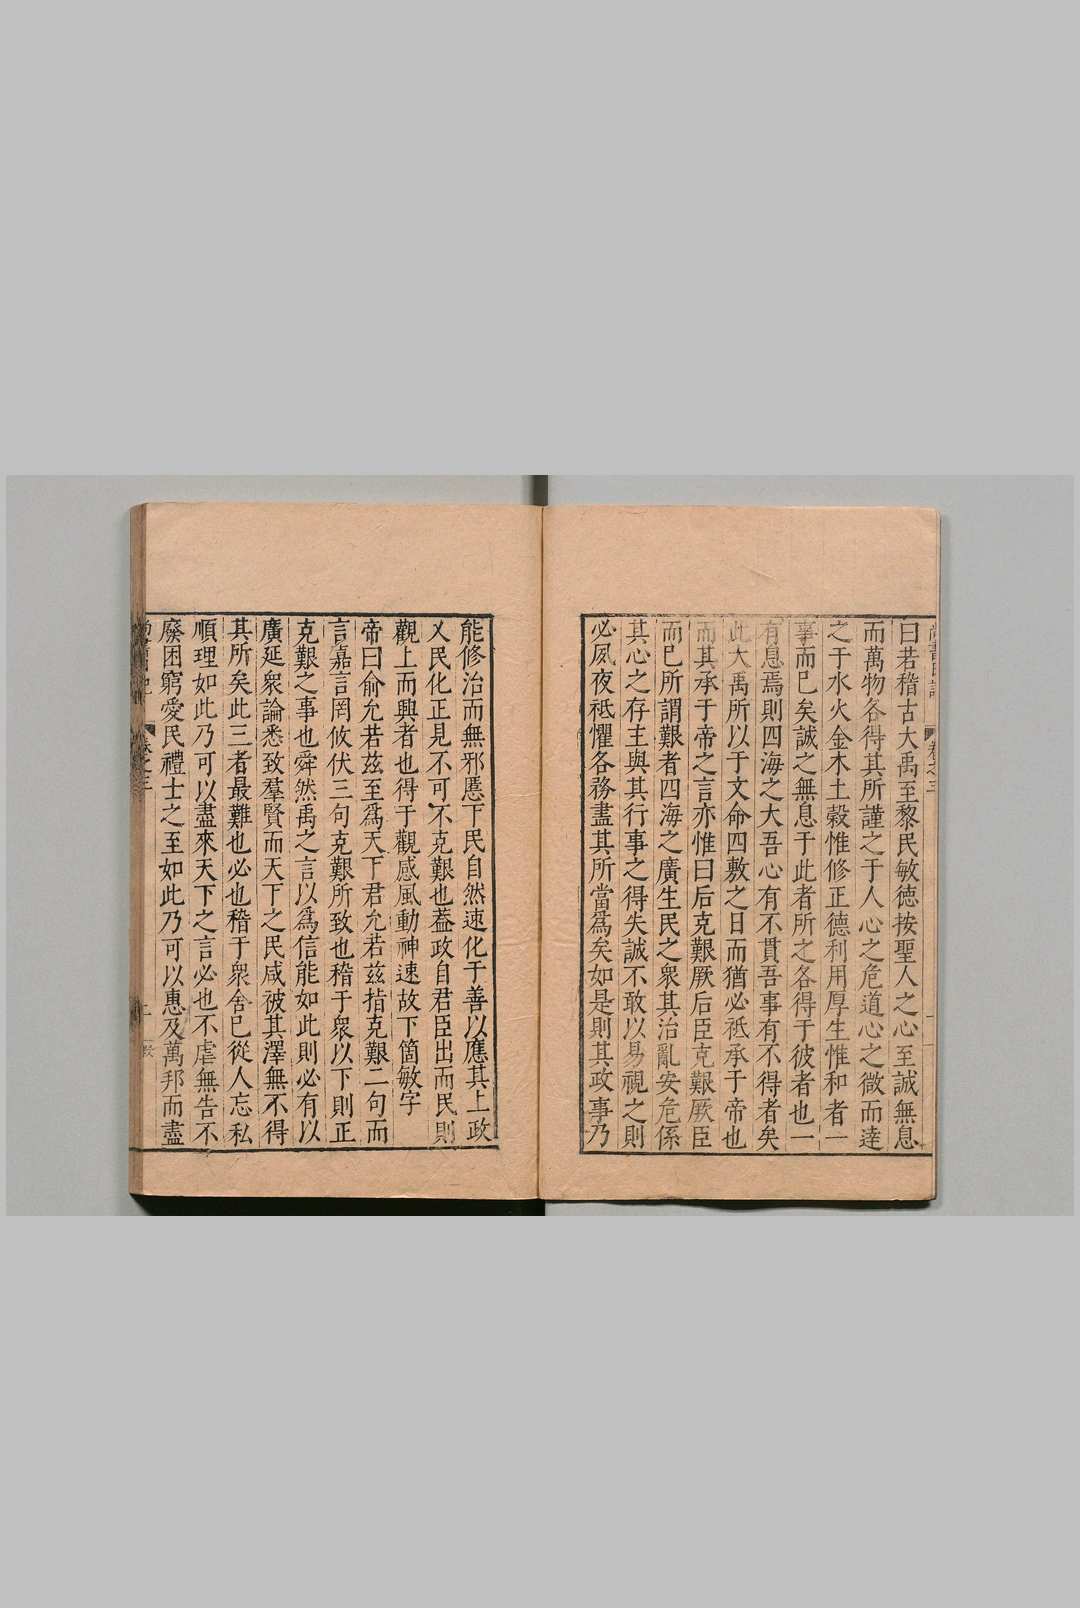 曰若稽古大禹至黎民敏德按聖人之心至誠無息
而萬物各得其所謹之于人心之危道心之微而達
之于水火金木土穀惟修正德利用厚生惟和者一
事而已矣誠之無息于此者所之各得于彼者也一
有息焉則四海之大吾心有不貫吾事有不得者矣
此大禹所以于文命四敷之日而猶必祗承于帝也
而其承于帝之言亦惟曰后克艱厥后臣克艱厥臣
而已所謂艱者四海之廣生民之衆其治亂安危係
其心之存主與其行事之得失誠不敢以易視之則
必夙夜祗懼各務盡其所當爲矣如是則其政事乃
能修治而無邪慝下民自然速化于善以應其上政
乂民化正見不可不克艱也葢政自君臣出而民則
觀上而興者也得于觀感風動神速故下箇敏字
帝曰俞允若兹至爲天下君允若兹指克艱二句而
言嘉言罔攸伏三句克艱所致也稽于衆以下則正
克艱之事也舜然禹之言以爲信能如此則必有以
廣延衆論悉致羣賢而天下之民咸被其澤無不得
其所矣此三者最難也必也稽于衆舍已從人忘私
順理如此乃可以盡來天下之言必也不虐無告不
廢困窮愛民禮士之至如此乃可以惠及萬邦而盡
卷之三